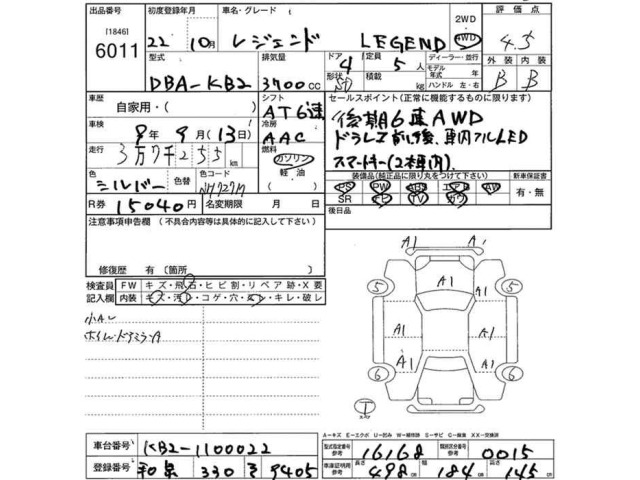 出品番号 初度登録年月 車名・グレード 2WD 評価点
[1846]
6011 22 10月 レジェンド LEGEND 4WD 4.5
型式 排気量 ドア 定員 ディーラー・並行 外装 内装
4 5人 モデル年式 年式
DBA-KB2 3700cc 形状 SD 積載 kg ハンドル 左・右 B B
車歴 シフト セールスポイント(正常に機能するものに限ります)
自家用・( ) AT6速 後期6速AWD
車検 9年9月(13日) 冷房 AAC ドラレコ前後、車内フルLED
走行 3万7千255km 燃料 ガソリン スマートキー(2本内).
軽油 装備品(純正品に限り丸をつけて下さい) 新車保証書
色 シルバー 色替 色コード NH727M PS PW ABS エアB AW 有・無
SR ナビ TV カワ
R券 15040円 名変期限 月 日 後日品
注意事項申告欄(不具合内容等は具体的に記入して下さい)
修復歴 有〔箇所
検査員記入欄 FW キズ・飛石・ヒビ割・リペア跡・X要
内装 キズ・汚レ・コゲ・穴・ヌレ・キレ・破レ
小AU
ホイル.ドアミラーA
A1 A1
5 A1 5
A1 A1
A1 A1
6 6
A=キズ E=エクボ U=凹み W=補修跡 S=サビ C=腐食 XX=交換済
車台番号 KB2-1100022 型式指定番号 参考 16168 類別区分番号 参考 0015
登録番号 和泉 330 そ 9405 車庫証明用 参考 長さ 498cm 幅 184cm 高さ 145cm